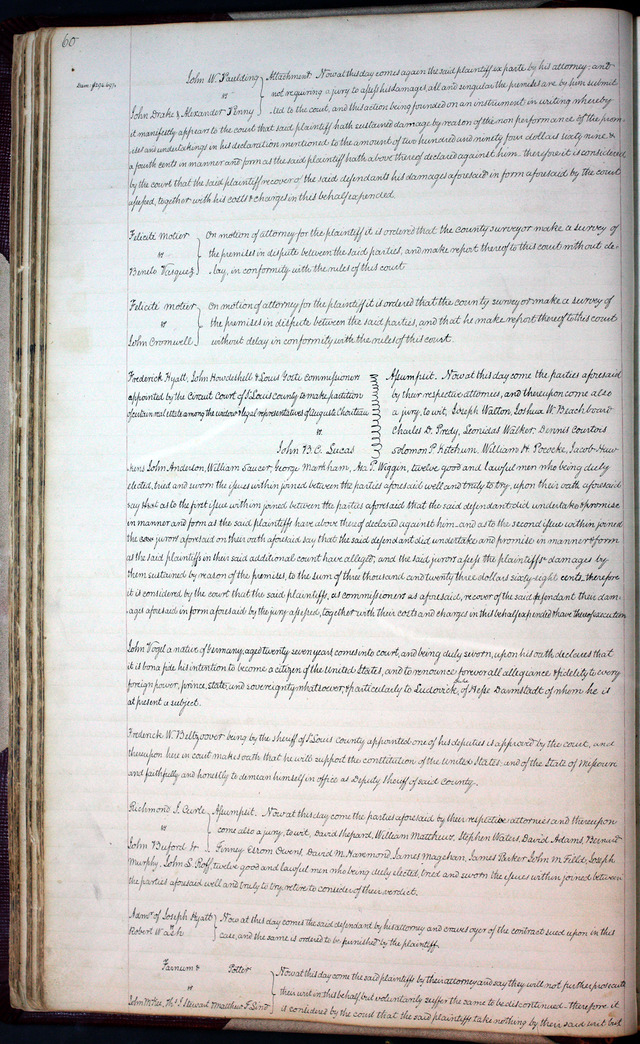 60
John W. Paulding } Attachment. Now at this day comes again the said plaintiff ex parte by his attorney, and
vs not requiring a jury to assess his damages, all and singular the premises are by him submit
John Drake & Alexander Penny ted to the court, and this action being founded on an instrument in writing whereby
it manifestly appears to the court that said plaintiff hath sustained damage by reason of the non performance of the prom
ises and undertakings in his declaration mentioned to the amount of two hundred and ninety four dollars sixty nine &
a fourth cents in manner and form as the said plaintiff hath above thereof declared against him therefore it is considered
by the court that the said plaintiff recover of the said defendants his damages aforesaid in form aforesaid by the court
assessed, together with his costs & charges in this behalf expended.
Felicité Motier } On motion of attorney for the plaintiff it is ordered that the county surveyor make a survey of
vs the premises in dispute between the said parties, and make report thereof to this court without de-
Benito Vasquez lay, in conformity with the rules of this court
Felicité Motier } On motion of attorney for the plaintiff it is ordered that the county surveyor make a survey of
vs the premises in dispute between the said parties, and that he make report thereof to this court
John Cromwell without delay in conformity with the rules of this court.
Frederick Hyatt, John Howdeshell & Louis commissioners Assumpsit. Now at this day come the parties aforesaid
appointed by the Circuit Court of St Louis county to make partition by their respective attornies, and thereupon come also
of certain real estate among the widow & legal representatives of Auguste Chouteau a jury, to wit, Joseph Walton, Joshua W. Beachboard
vs Charles D. Predy, Leonidas Walker, Dennis Courtois
John B. C. Lucas Solomon P. Ketchum, William H. Pococke, Jacob Haw
kens John Anderson, William Saucer, George Markham, Asa P. Wiggin, twelve good and lawful men who being duly
elected, tried and sworn the issues within joined between the parties aforesaid well and truly to try, upon their oath aforesaid
say that as to the first issue within joined between the parties aforesaid that the said defendant did undertake & promise
in manner and form as the said plaintiffs have above thereof declared against him and as to the second issue within joined
the jurors aforesaid on their oath aforesaid say that the said defendant did undertake and promise in manner & form
as the said plaintiffs in their said additional count have alleged, and the said jurors assess the plaintiffs damages by
them sustained by reason of the premises, to the sum of three thousand and twenty three dollars sixty eight cents, therefore
it is considered by the court that the said plaintiffs, as commissioners as aforesaid, recover of the said defendant their dam-
ages aforesaid in form aforesaid by the jury assessed, together with their costs and charges in this behalf expended & have thereof execution
John Vogel a native of Germany, aged twenty seven years comes into court, and being duly sworn, upon his oath declares that
it is bona fide his intention to become a citizen of the United States, and to renounce forever all allegiance & fidelity to every
foreign power, prince, state, and sovereignty whatsoever, & particularly to Ludovick, Duke of Hesse Darmstadt of whom he is
at present a subject.
Frederick W. Beltzoover being by the sheriff of St Louis county appointed one of his deputies is approved by the court, and
thereupon here in court makes oath that he will support the constitution of the United States, and of the State of Missouri
and faithfully and honestly to demean himself in office as Deputy Sheriff of said county.
Richmond J. Curle } Assumpsit. Now at this day come the parties aforesaid by their respective attornies and thereupon
vs come also a jury, to wit, David Shepard, William Matthews, Stephen Waters, David Adams, Bernard
John Buford Jr Finney Esrom Owens, David M. Hammond, James Magehan, James Parker John M. Field, Joseph
Murphy, John S. Roff, twelve good and lawful men who being duly elected, tried and sworn the issues within joined between
the parties aforesaid well and truly to try, retire to consider of their verdict.
Admr of Joseph Hyatt } Now at this day comes the said defendant by his attorney and craves oyer of the contract sued upon in this
Robert Wash case, and the same is ordered to be furnished by the plaintiff.
Farnum & Potter } Now at this day come the said plaintiffs by their attorney and say they will not further prosecute
vs their writ in this behalf but voluntarily suffer the same to be discontinued therefore it
John McKee, Thos. J. Steward & Matthew F. is considered by the court that the said plaintiffs take nothing by their said writ but